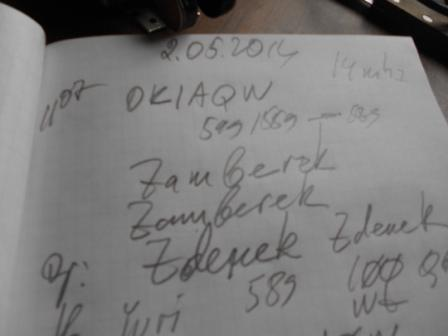 2.05.2014
14 mhz
1107 OK1AQW
599/559 — 589
Zamberek
Zamberek
Zdenek Zdenek
Op: 589 100
Yuri